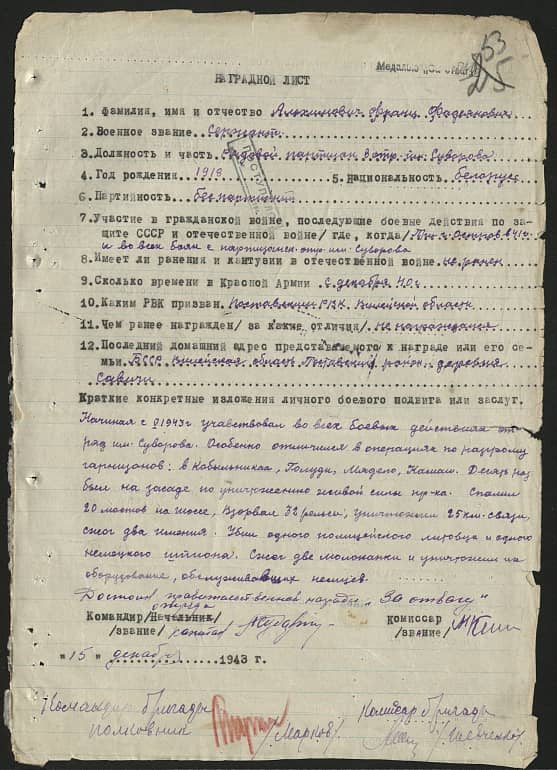 Медалью "За отвагу"
53
25
НАГРАДНОЙ ЛИСТ
1. Фамилия, имя и отчество Алихимович Франц Фадеянович
2. Военное звание Сержант
3. Должность и часть Рядовой партизан отр. им. Суворова
4. Год рождения 1919 5. Национальность белорус
6. Партийность беспартийный
7. Участие в гражданской войне, последующие боевые действия по за-
щите СССР и отечественной войне/ где, когда/ в 41г.
и во всех боях с партизанск. отр. им. Суворова
8. Имеет ли ранения и кантузии в отечественной войне не ранен
9. Сколько времени в Красной Армии с декабря 40 г
10. Каким РВК призван Поставским РВК Вилейской области
11. Чем ранее награжден/ за какие отличия/ не награждался
12. Последний домашний адрес представляемого к награде или его се-
мьи. БССР Вилейская область Поставский район деревня
Савичи
Краткие конкретные изложения личного боевого подвига или заслуг.
Начиная с 1943г учавствовал во всех боевых действиях от-
ряд им. Суворова. Особенно отличился в операциях по разгрому
гарнизонов: в Кобыльниках, Мядело, Десять раз
был на засаде по уничтожению живой силы пр-ка. Спалил
20 мостов на шоссе, взорвал 32 рельсы, уничтожил 25 км. связи,
сжег два имения. Убил одного полицейского литовца и одного
немецкого шпиона. Сжег две молочанки и уничтожил их
оборудование, обслуживавших немцев.
Достоин правительственной награды "За отвагу"
отряда
Командир/Начальник/ комиссар
/звание/ капитан /звание/
"15" декабря 1943 г.
Командир бригады Комиссар бригады
полковник /Марков/ /Шевченко/